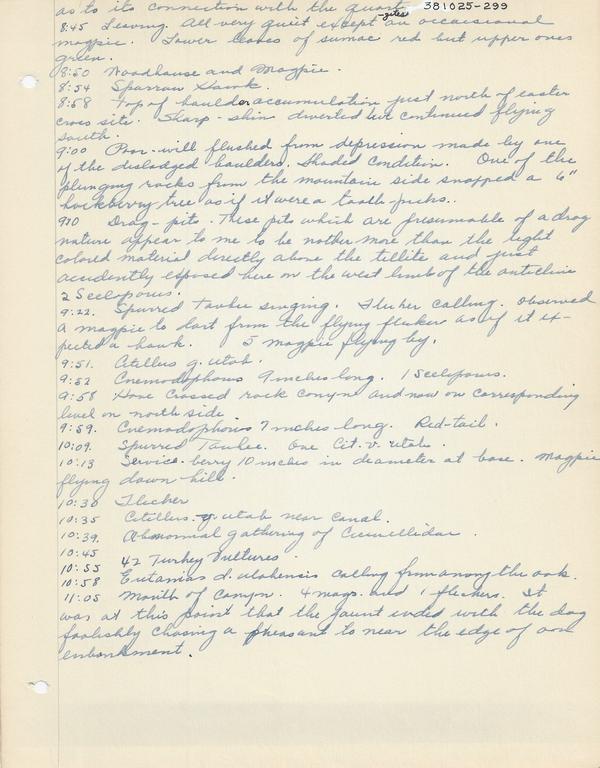 as to its connection with the quart-zites 381025-299
8:45 Leaving. All very quiet except an occasional
magpie. Lower leaves of sumac red but upper ones
green.
8:50 Woodhouse and Magpie.
8:54 Sparrow Hawk.
8:58 Top of boulder accumulation just north of easter
cross site. Sharp-shin diverted but continued flying
south.
9:00 Poor-will flushed from depression made by one
of the dislodged boulders. Shaded condition. One of the
plunging rocks from the mountain side snapped a 6"
hackberry tree as if it were a tooth-pick.
910 Drag-pits. These pits which are presumable of a drag
nature appear to me to be nother more than the light
colored material directly above the tillite and just
accidently exposed here on the west limb of the anticline
2 Sceloporus.
9:22. Spurred Towhee singing. Flicker calling. Observed
a magpie to dart from the flying flicker as if it ex-
pected a hawk. 5 magpie flying by.
9:51. Citellus g. utah.
9:52 Cnemodophorus 9 inches long. 1 Sceloporus.
9:58 Have crossed rock conyn and now on corresponding
level on north side.
9:59. Cnemodophorus 7 inches long. Red-tail.
10:09. Spurred Towhee. One Cit. v. utah.
10:13 Service-berry 10 inches in diameter at base. Magpie
flying down hill.
10:30 Flicker
10:35 Citellus. g. utah near Canal.
10:39. Abnormal gathering of
10:45
10:55 42 Turkey Vultures.
10:58 Eutamias d. utahensis calling from among the oak.
11:05 Mouth of Canyon. 4 mags. and 1 flickers. It
was at this point that the jaunt ended with the dog
foolishly chasing a pheasant to near the edge of
embankment.